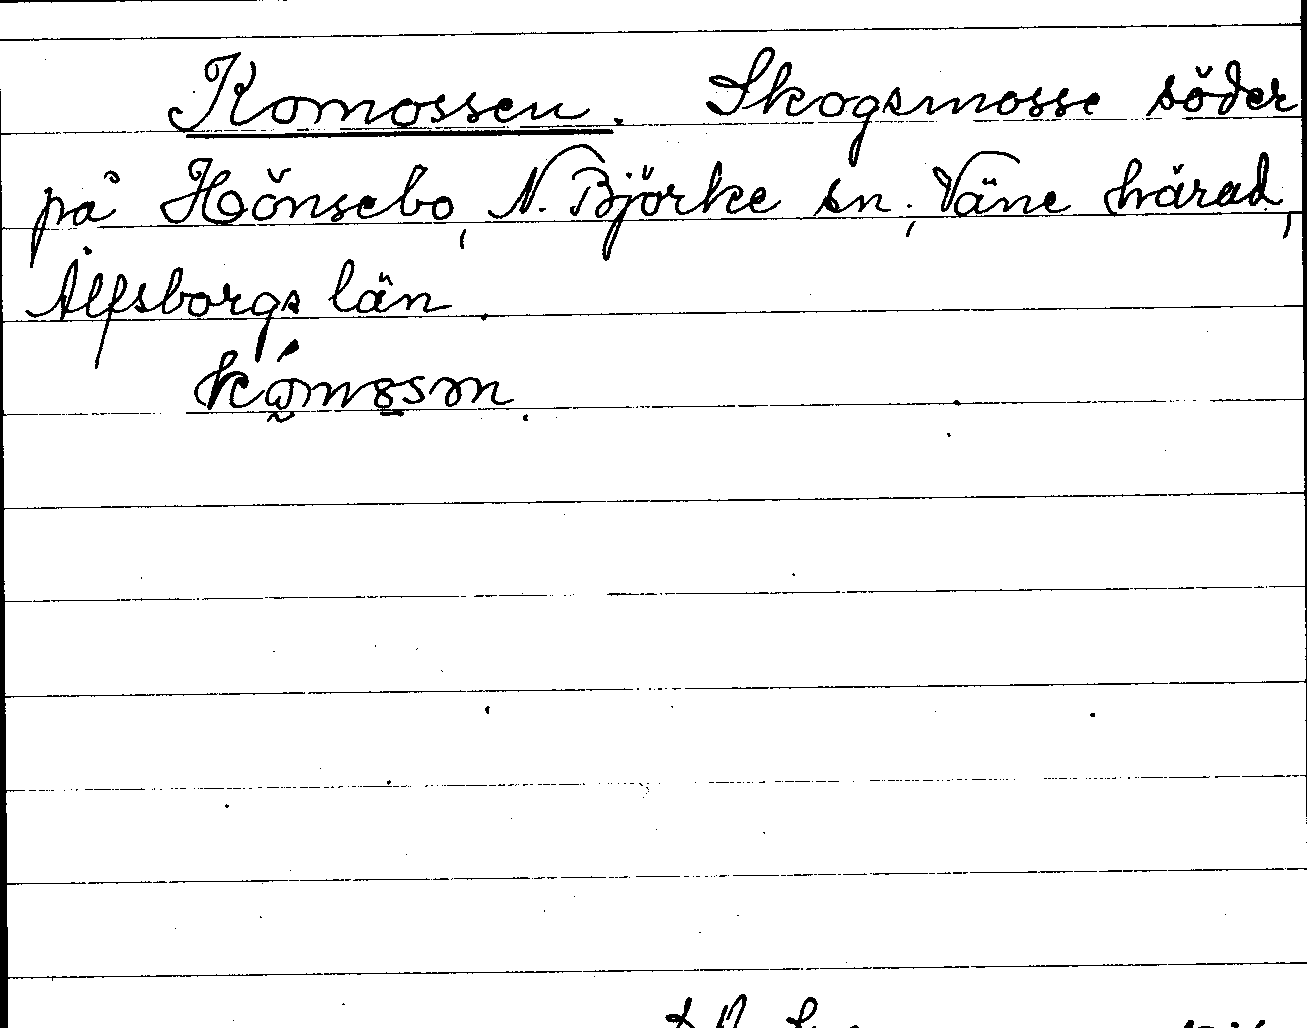 Komossen. Skogsmosse söder
på Hönsebo, N. Björke sn, Väne härad,
Älfsborgs län.